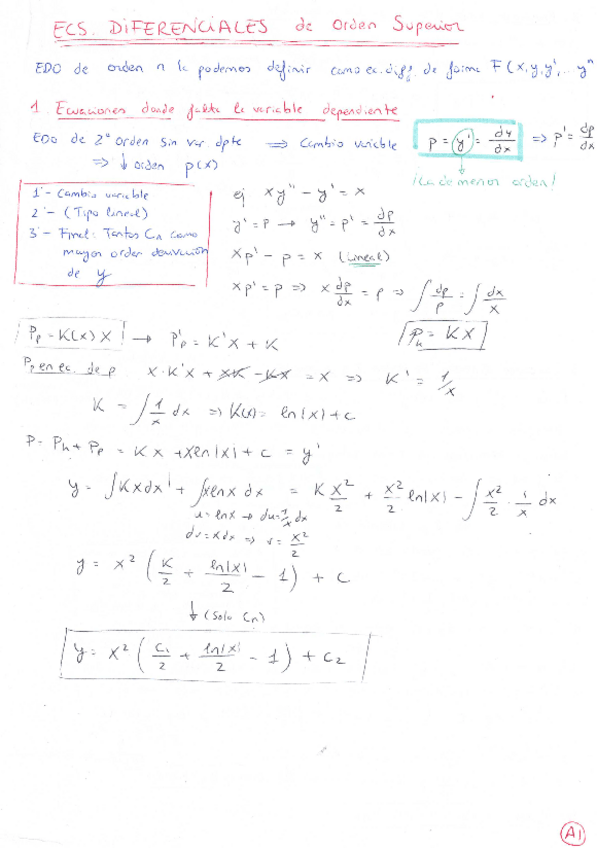 ECS. DIFERENCIALES de Orden Superior
EDO de orden n la podemos definir como ec. dif. de forma F(x,y,y',... yⁿ
1. Ecuaciones donde falta la variable dependiente
EDO de 2º Orden sin var. dpte ⟹ Cambio varible p = y' = dy/dx ⟹ p' = dp/dx
⟹ ↓ orden p(x)
¡La de menor orden!
1º- Cambio variable
2º- (Tipo lineal)
3º- Final: Tantos Cn como
mayor orden derivación
de y
ej xy'' - y' = x
y' = p → y'' = p' = dp/dx
xp' - p = x (lineal)
xp' = p ⟹ x dp/dx = p ⟹ ∫ dp/p = ∫ dx/x
Ph = KX
Pp = K(x) X → P'p = K'X + K
Pp en ec. de p x·K'X + XK - KX = X ⟹ K' = 1/x
K = ∫ 1/x dx ⟹ K(x) = ln|x| + c
P = Ph + Pp = KX + xln|x| + c = y'
y = ∫KXdx + ∫xlnx dx = K x²/2 + x²/2 ln|x| - ∫ x²/2 · 1/x dx
u = lnx → du = 1/x dx
dv = xdx ⟹ v = x²/2
y = x² (K/2 + ln|x|/2 - 1) + c
↓ (Solo Cn)
y = x² (C1/2 + ln|x|/2 - 1) + C2
A1